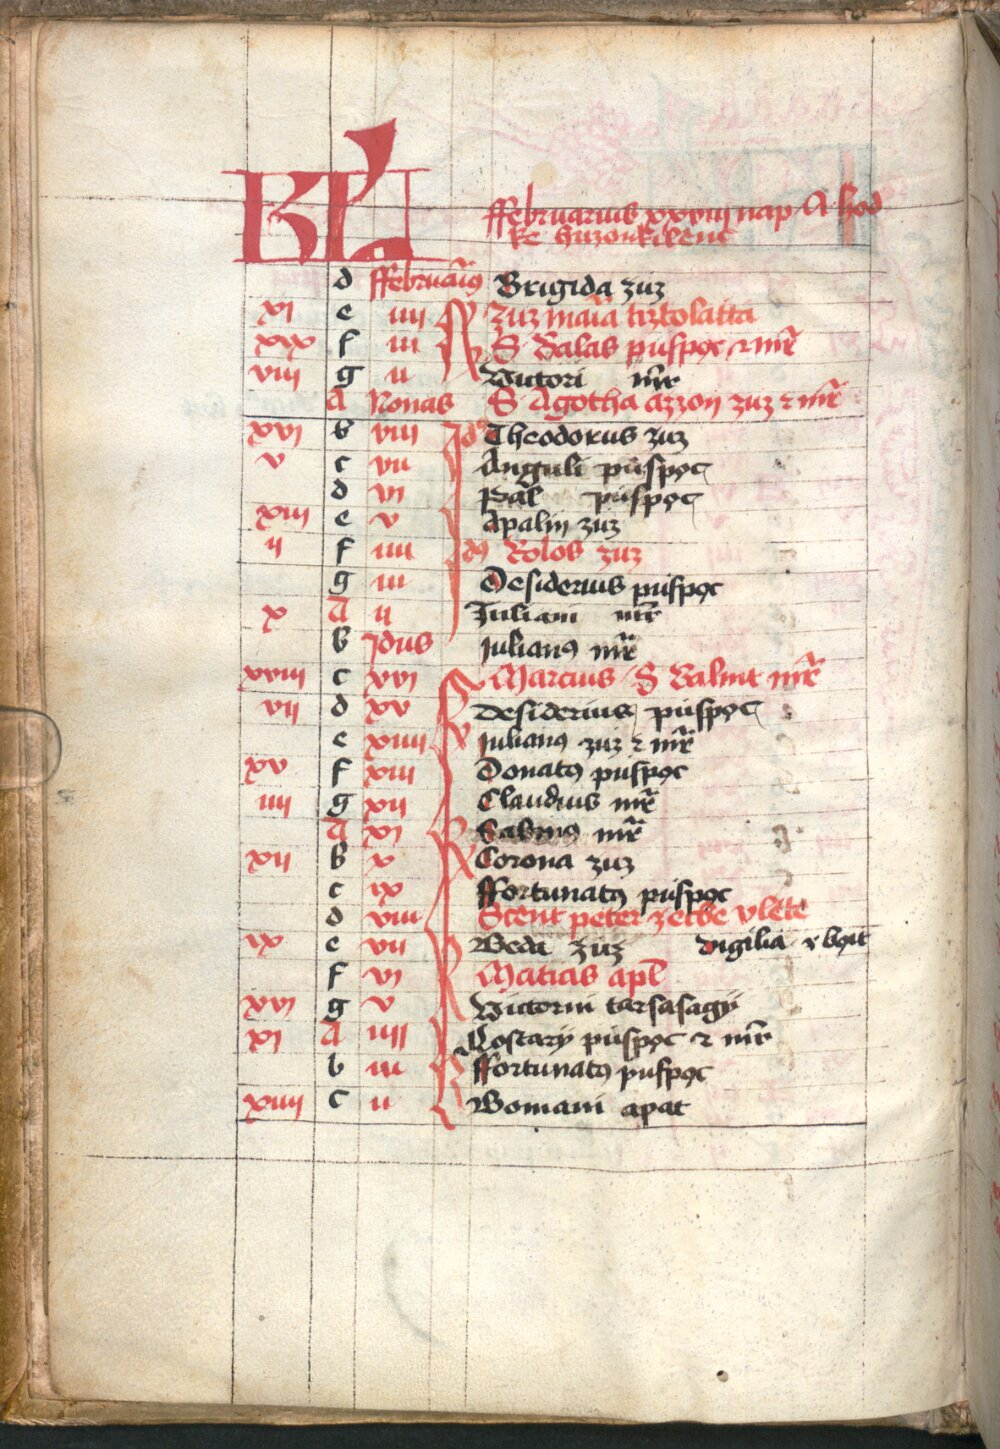 KL
ffebruarius xxviii nap A hod
ke huzonkilenc
d ffebruariꝯ Brigida zuz
xi e iiii zuz maria tiztolatta
xix f iii S Balas puspọc ⁊ mr̄
viii g ii Victori mr̄
A Nonas S Agotha azzon zuz ⁊ mr̄
xvi b viii Theodorus zuz
v c vii Anguli puspọc
d vi Pal puspọc
xiii e v Apalin zuz
ii f iiii Kolos zuz
g iii Desiderius puspọc
x A ii Iuliani mr̄
b Idus Iulianꝯ mr̄
xviii c xvi Marcius S Balint mr̄
vii d xv Desiderius puspọc
e xiiii Iulianꝯ zuz ⁊ mr̄
xv f xiii Donatꝯ puspọc
iiii g xii Claudius mr̄
A xi Sabinꝯ mr̄
xii b x Corona zuz
c ix ffortunatꝯ puspọc
d viii Scent peter zecbe vlete
ix e vii Bede zuz vigilia
f vi Matias apl
xvi g v Victorin tarsasagy
xi A iiii puspọc ⁊ mr̄
b iii ffortunatꝯ puspọc
xiiii c ii Romani apat